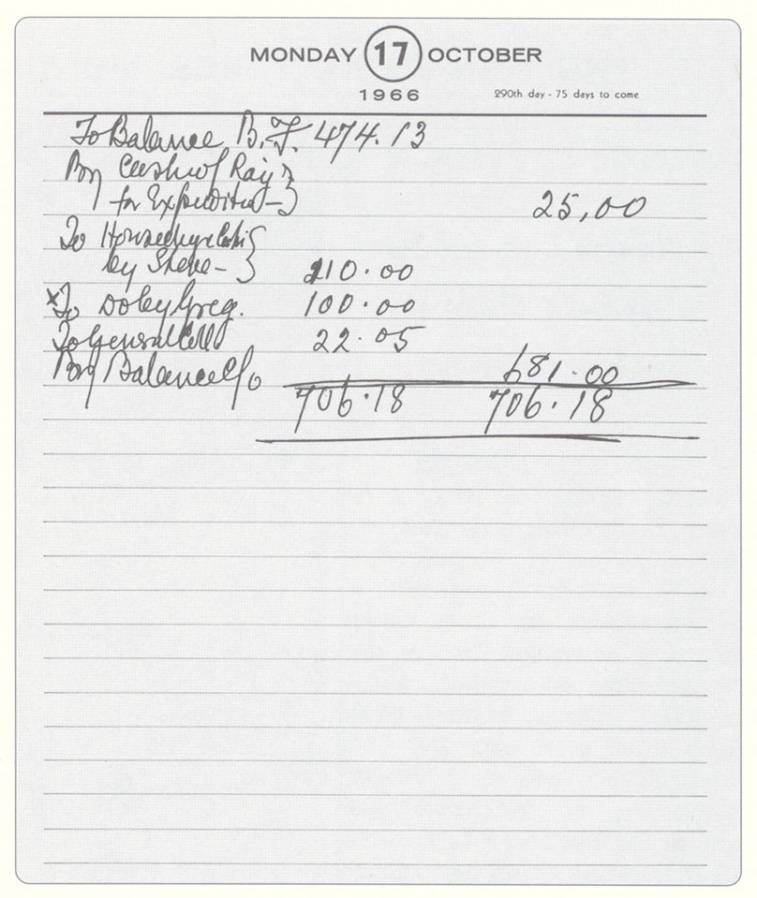 MONDAY 17 OCTOBER
1966 290th day - 75 days to come
To Balance B.F. 474.13
By Cash of Ray
for Expenditure - 25,00
To
by Steve - 210.00
x To Doley Greg. 100.00
To General Coll 22.05
By Balance C/o 681.00
706.18 706.18